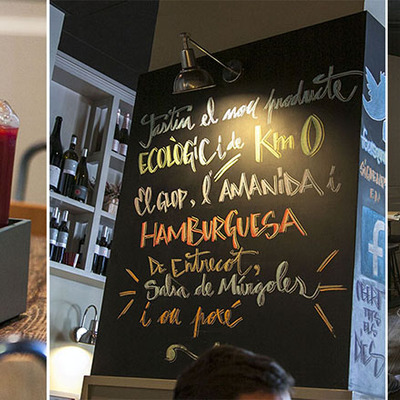 Tastin el nou producte
ECOLÒGIC i de Km 0
El GLOP, l'AMANIDA i
HAMBURGUESA
De Entrecot,
Salsa de Múrgoles
i ou poxé
EN